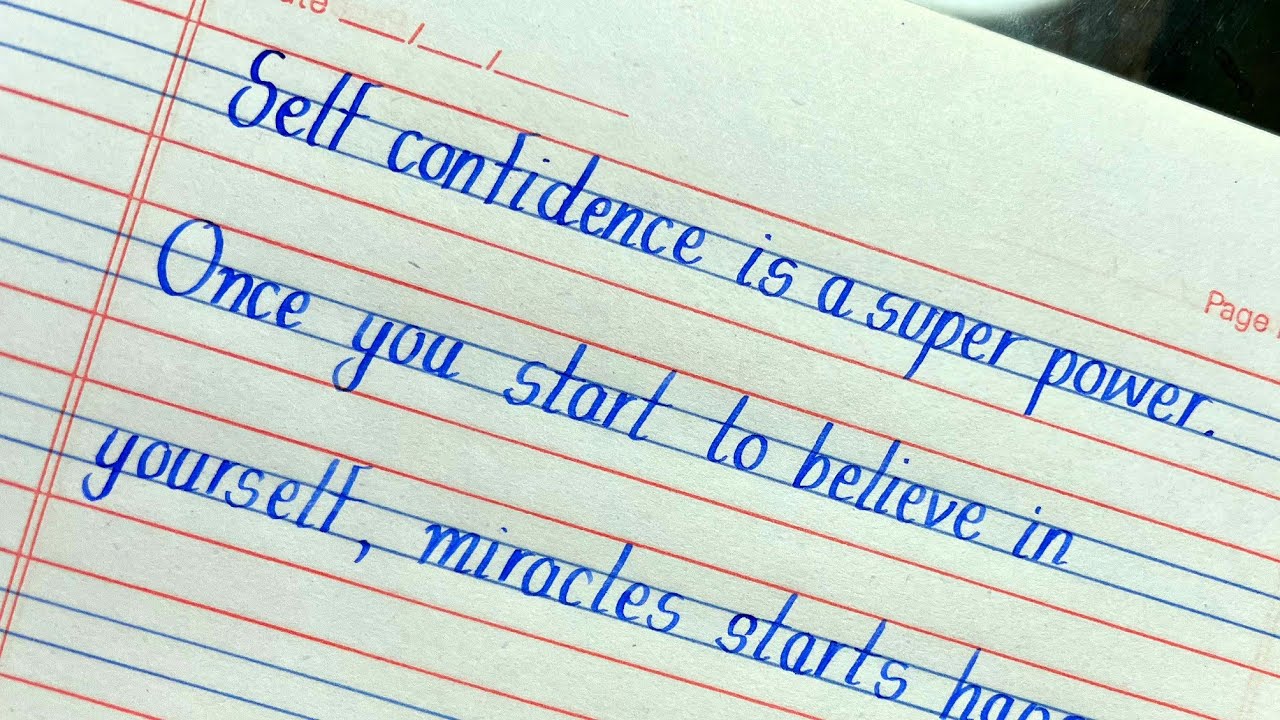 Self confidence is a super power.
Once you start to believe in
yourself, miracles starts
Page